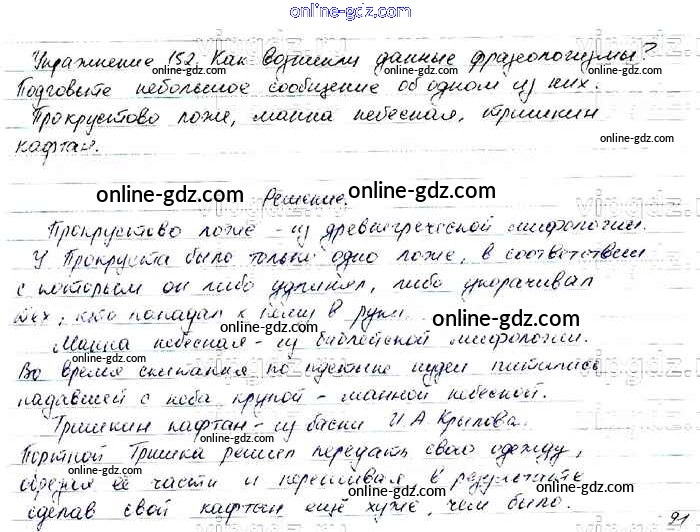 online-gdz.com
Упражнение 152. Как возникли данные фразеологизмы?
Подготовьте небольшое сообщение об одном из них.
online-gdz.com
Прокрустово ложе, манна небесная, тришкин
online-gdz.com
кафтан.
online-gdz.com
online-gdz.com
Решение.
Прокрустово ложе - из древнегреческой мифологии.
У Прокруста было только одно ложе, в соответствии
с которым он либо удлинял, либо укорачивал
тех, кто попадал к нему в руки.
online-gdz.com
online-gdz.com
Манна небесная - из библейской мифологии.
online-gdz.com
Во время скитания по пустыне иудеи питались
падавшей с неба крупой - манной небесной.
online-gdz.com
Тришкин кафтан - из басни И.А. Крылова.
online-gdz.com
Портной Тришка решил переделать свою одежду,
обрезая её части и перешивая, в результате
online-gdz.com
сделав свой кафтан ещё хуже, чем было.
online-gdz.com
91